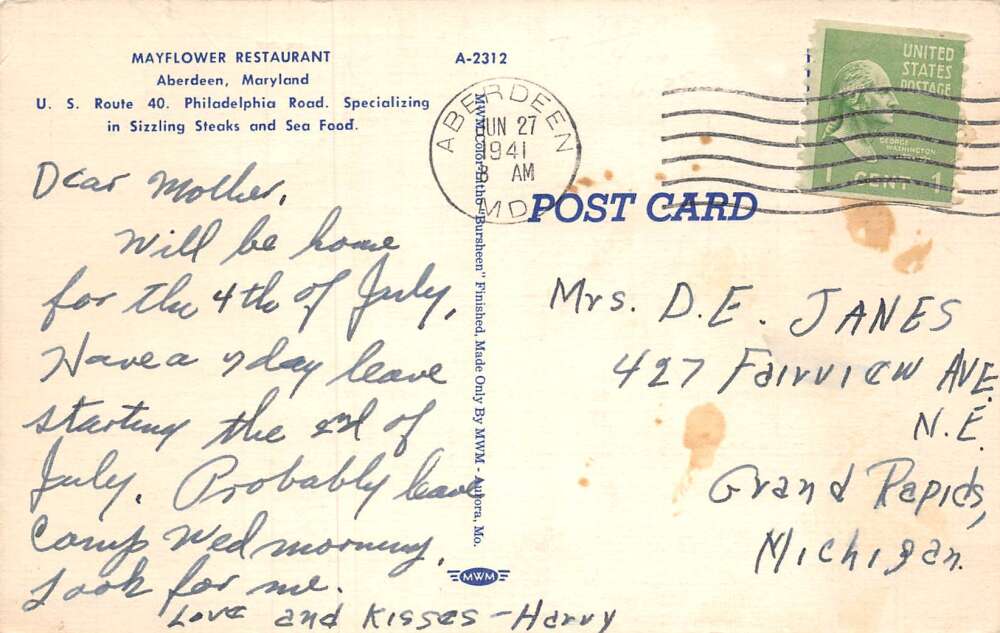 MAYFLOWER RESTAURANT
Aberdeen, Maryland
U. S. Route 40. Philadelphia Road. Specializing
in Sizzling Steaks and Sea Food.
A-2312
ABERDEEN
JUN 27
1941
8 AM
MD
UNITED
STATES
POSTAGE
GEORGE
WASHINGTON
1 CENT 1
POST CARD
MWM Color-Litho "Bursheen" Finished, Made Only By MWM - Aurora, Mo.
MWM
Dear Mother,
Will be home
for the 4th of July,
Have a 7 day leave
starting the 2nd of
July. Probably leave
Camp Wed morning.
Look for me.
Love and Kisses - Harvy
Mrs. D.E. JANES
427 Fairview AVE.
N.E.
Grand Rapids,
Michigan.